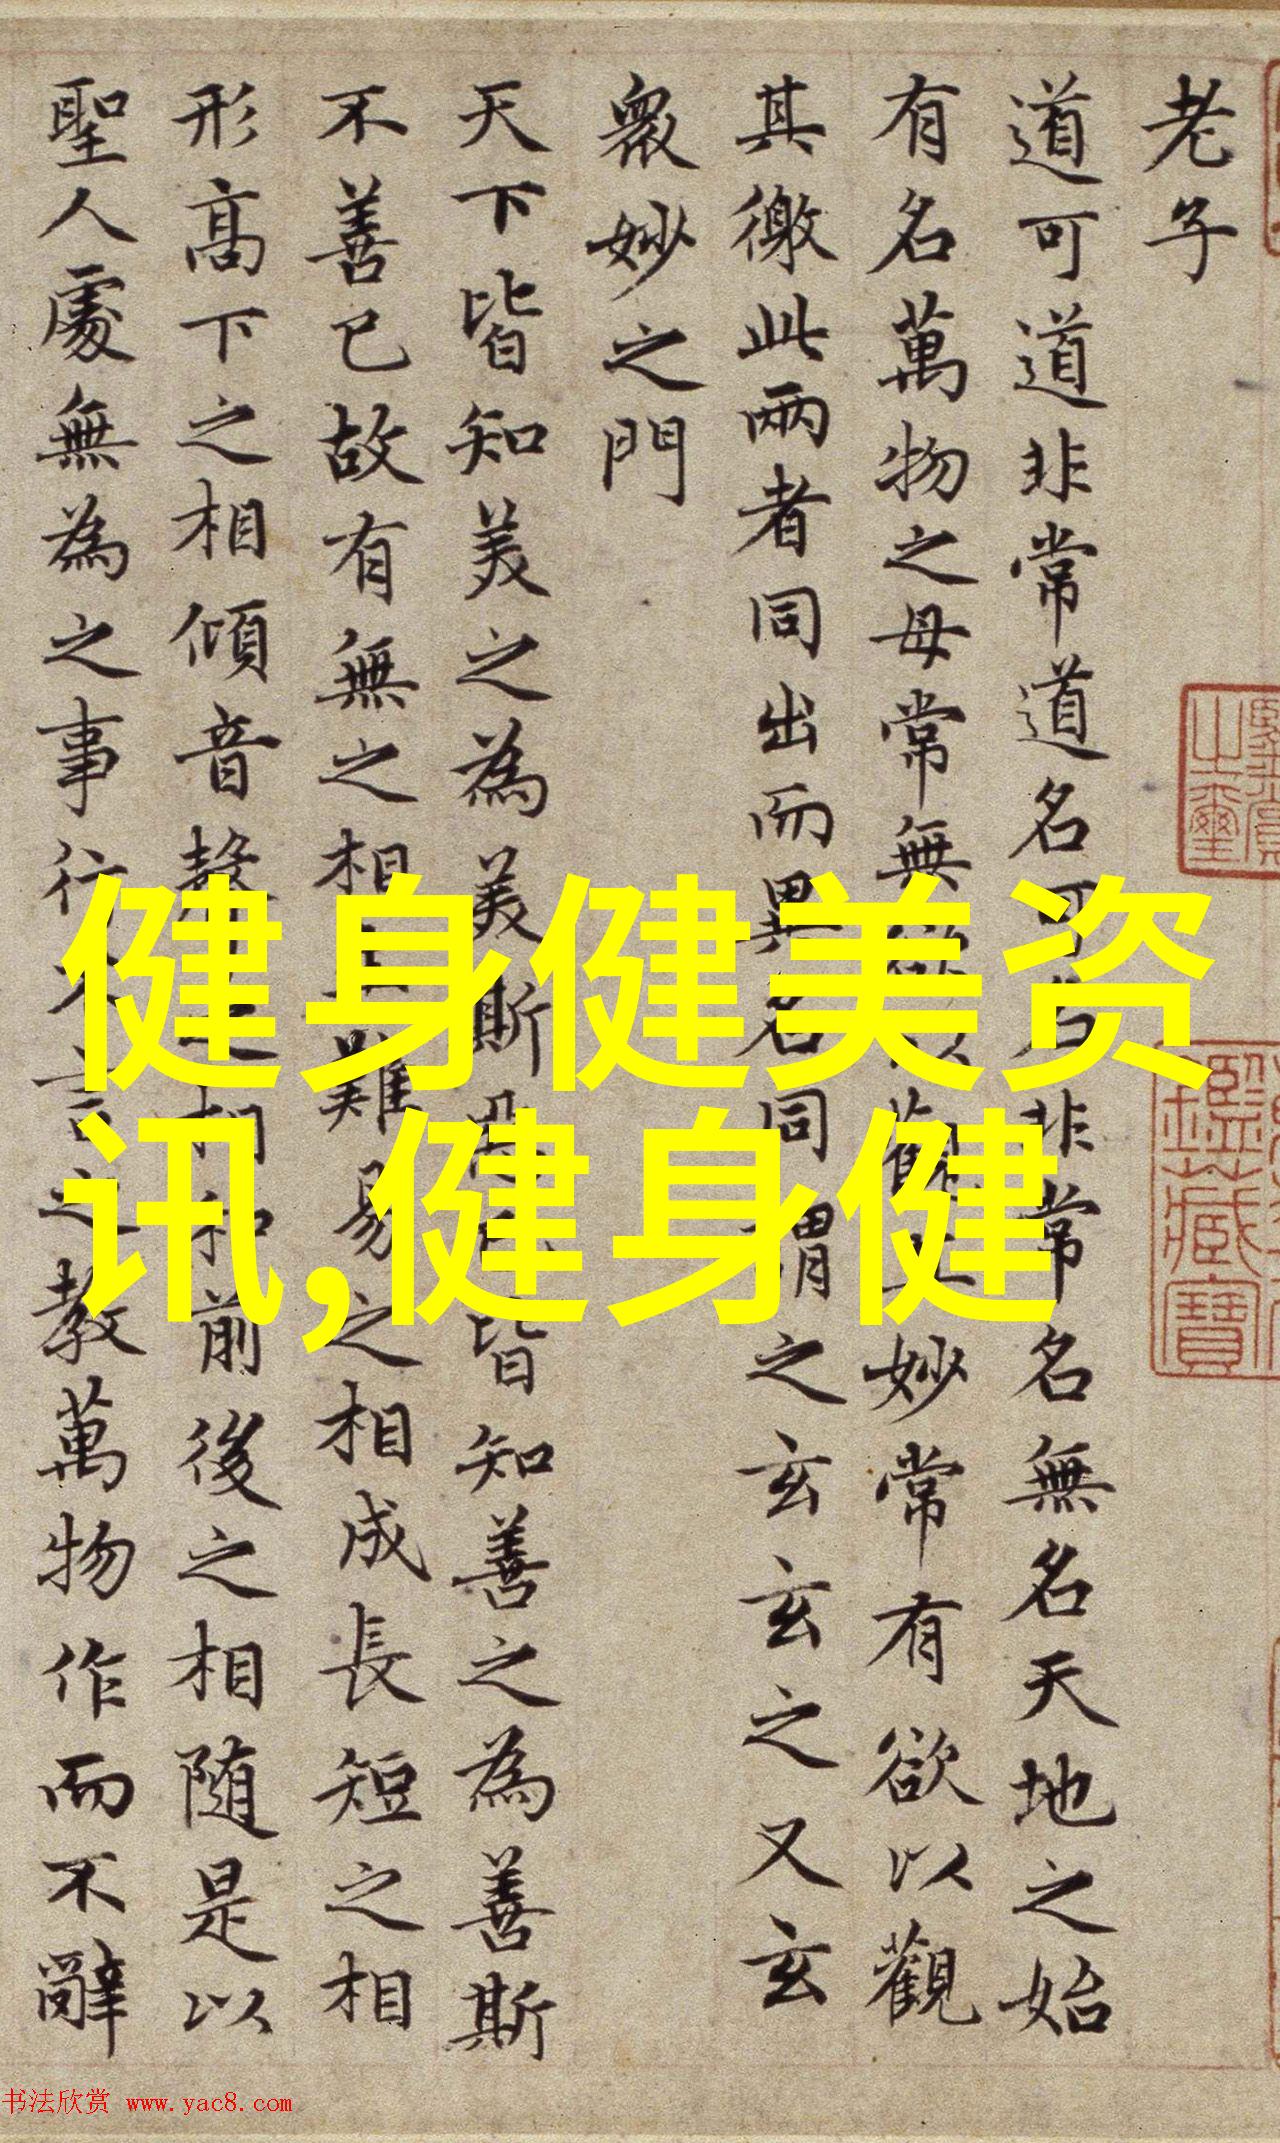 老子
道可道非常道名可名非常名無名天地之始
有名萬物之母常無欲以觀其妙常有欲以觀
其徼此兩者同出而異名同謂之玄玄之又玄
衆妙之門
天下皆知美之為美斯惡已皆知善之為善斯
不善已故有無之相生難易之相成長短之相
形高下之相傾音聲之相和前後之相随是以
聖人處無為之事行不言之教萬物作而不辭
健身健美资
讯,健身健
书法欣赏 www.yac8.com